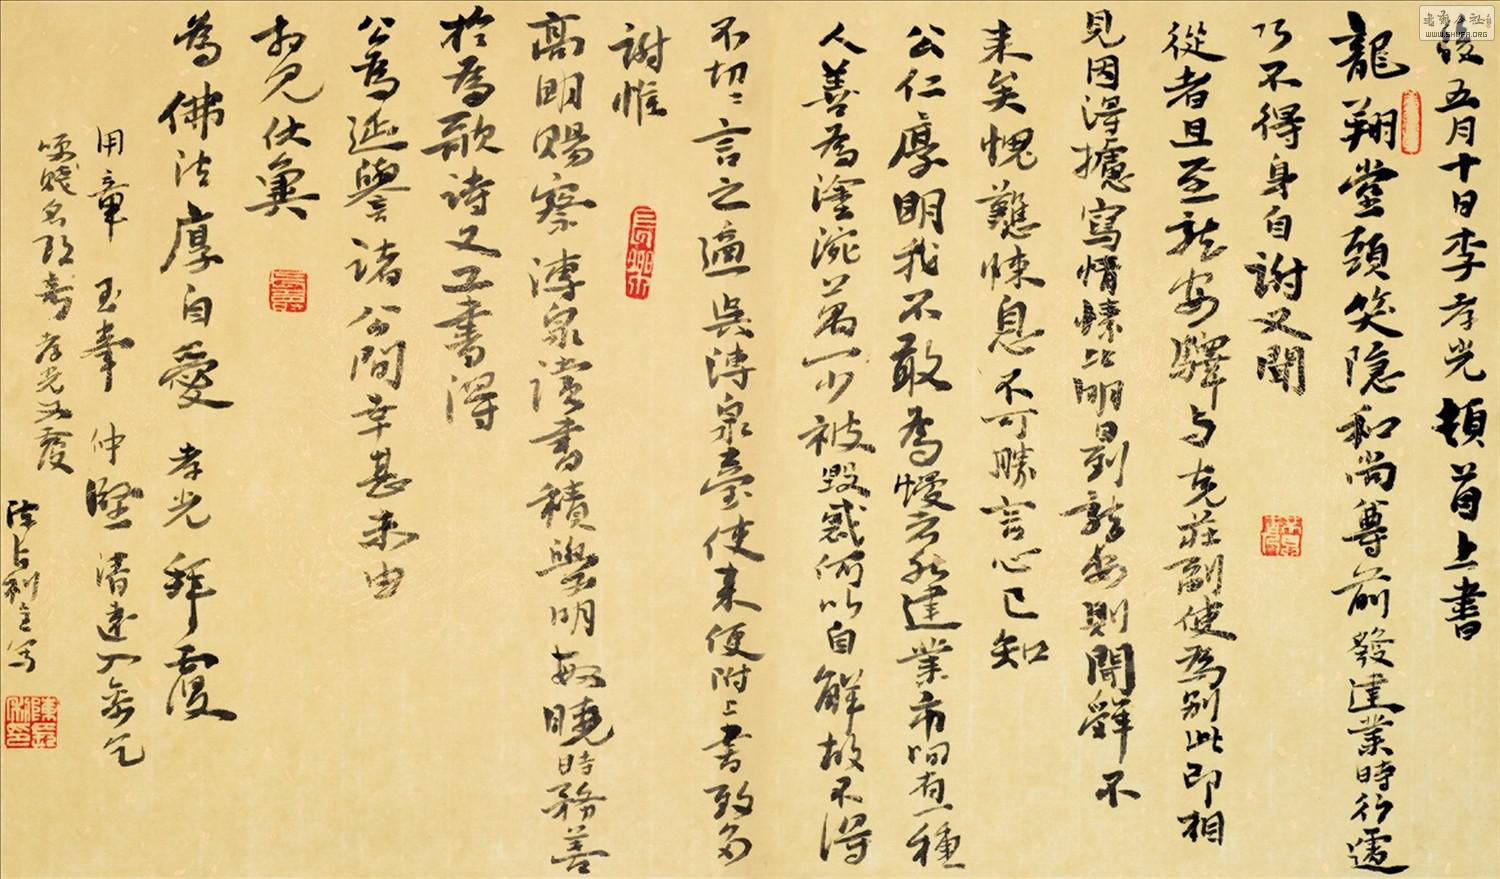 後五月十日李孝光頓首上書
龍翔堂頭笑隐和尚尊前發建業時行遽
乃不得身自謝又聞
從者且至龍安驛与克莊副使為別此即相
見因得攄寫情愫比明日到龍安則聞辭不
来矣愧歎悚息不可勝言心已知
公仁厚明我不敢為慢去然建業市怛有一種
人善為塗涴萬一少被毀惑何以自解故不得
不切〻言之適吳溥泉臺使来便附上書致多
謝惟
高明賜察溥泉讀書積學明敏曉時務善
於為歌詩又工書得
公為延譽諸公間幸甚未由
相見伏冀
為佛法厚自愛 孝光拜覆
用章 玉峯 仲堅 清遠 不各乞
賤名 孝光又覆
陈占利
WWW.SHUFA.ORG